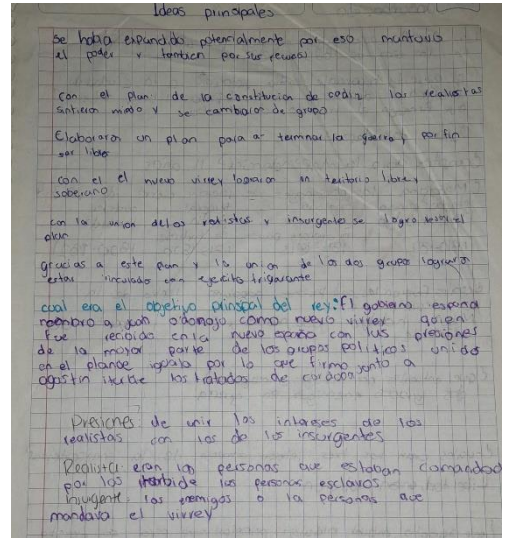 Ideas principales
Se habia expandido potencialmente por eso mantuvo
el poder y tambien por sus
con el plan de la constitucion de cadiz los realistas
sintieron miedo y se cambiaron de grupo
Elaboraron un plan para a terminar la guerra y por fin
ser libre
con el el nuevo virrey lograron un teritorio libre y
soberano
con la union delos realistas y insurgente se logro el
plan
gracias a este plan y la union de los dos grupos lograron
estar vinculados con ejercito trigarante
cual era el objetivo prinsipal del rey: El gobierno espana
nombro a juan odonojo como nuevo virrey quien
fue recibido en la nueva españa con las presiones
de la mayor parte de los grupos politicos unidos
en el plande iguala por lo que firmo junto a
agostin iturbe los tratados de cordoba
Presiones de unir los intereses de los
realistas con los de los insurgentes
Realista: eran las personas que estaban comandad
por los iturbide las personas esclavos
insurgente: los enemigos o la personas que
mandava el virrey